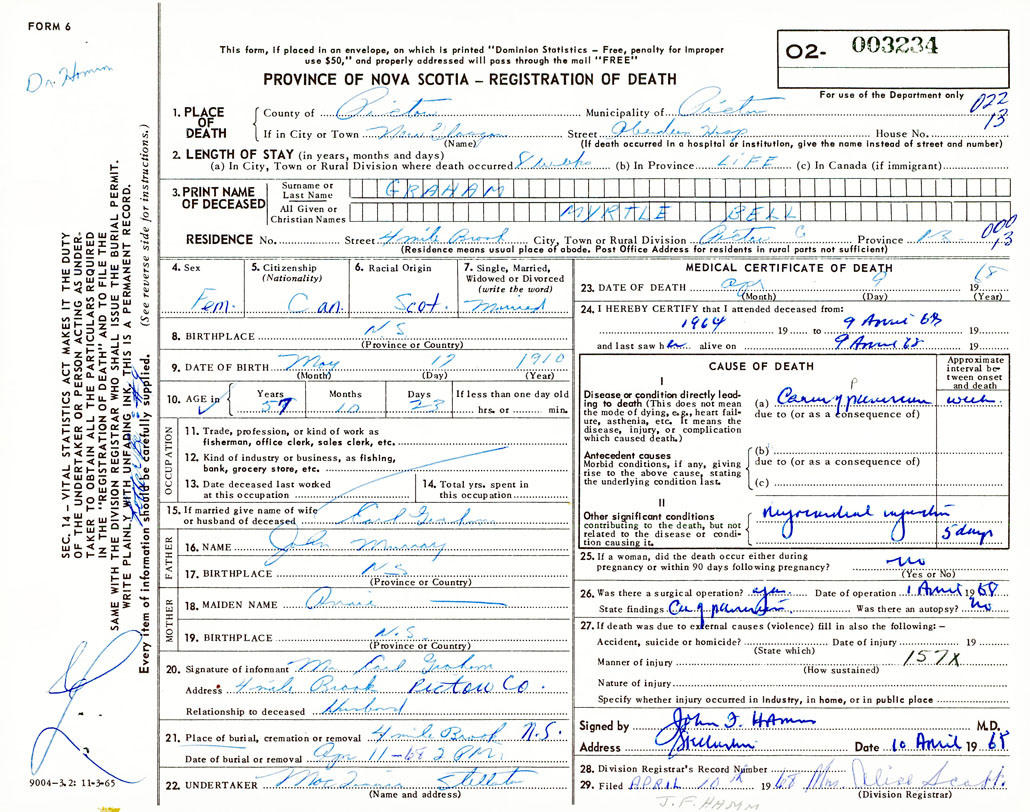 FORM 6
Dr. Hamm
This form, if placed in an envelope, on which is printed "Dominion Statistics – Free, penalty for improper
use $50," and properly addressed will pass through the mail "FREE"
PROVINCE OF NOVA SCOTIA – REGISTRATION OF DEATH
O2- 003234
For use of the Department only
022
13
1. PLACE OF DEATH
County of Pictou Municipality of Pictou
If in City or Town New Glasgow Street Aberdeen Hosp House No.
(Name) (If death occurred in a hospital or institution, give the name instead of street and number)
2. LENGTH OF STAY (in years, months and days)
(a) In City, Town or Rural Division where death occurred 8 weeks (b) In Province LIFE (c) In Canada (if immigrant)
3. PRINT NAME OF DECEASED
Surname or Last Name GRAHAM
All Given or Christian Names MYRTLE BELL
RESIDENCE No. Street 4 mile Brook City, Town or Rural Division Pictou C Province N.S.
000
13
(Residence means usual place of abode. Post Office Address for residents in rural parts not sufficient)
4. Sex Fem.
5. Citizenship (Nationality) Can.
6. Racial Origin Scot.
7. Single, Married, Widowed or Divorced (write the word) Married
8. BIRTHPLACE N S
(Province or Country)
9. DATE OF BIRTH May 17 1910
(Month) (Day) (Year)
10. AGE in Years 57 Months 10 Days 23 If less than one day old hrs. or min.
OCCUPATION
11. Trade, profession, or kind of work as
fisherman, office clerk, sales clerk, etc.
12. Kind of industry or business, as fishing,
bank, grocery store, etc.
13. Date deceased last worked
at this occupation
14. Total yrs. spent in
this occupation
15. If married give name of wife
or husband of deceased Earl Graham
FATHER
16. NAME John Murray
17. BIRTHPLACE N S
(Province or Country)
MOTHER
18. MAIDEN NAME Annie
19. BIRTHPLACE N.S.
(Province or Country)
20. Signature of informant Mr Earl Graham
Address 4 mile Brook Pictou Co.
Relationship to deceased Husband
21. Place of burial, cremation or removal 4 mile Brook N.S.
Date of burial or removal Apr 11-68 2 PM
22. UNDERTAKER Stellarton
(Name and address)
MEDICAL CERTIFICATE OF DEATH
23. DATE OF DEATH Apr 9 1968
(Month) (Day) (Year)
24. I HEREBY CERTIFY that I attended deceased from:
1964 19 to 9 April 68 19
and last saw her alive on 9 April 68 19
CAUSE OF DEATH
Approximate interval between onset and death
I
Disease or condition directly leading to death (This does not mean
the mode of dying, e.g., heart failure, asthenia, etc. It means the
disease, injury, or complication
which caused death.)
(a) Ca of pancreas weeks
due to (or as a consequence of)
Antecedent causes
Morbid conditions, if any, giving
rise to the above cause, stating
the underlying condition last.
(b)
due to (or as a consequence of)
(c)
II
Other significant conditions
contributing to the death, but not
related to the disease or condition causing it.
Myocardial infarction 5 days
25. If a woman, did the death occur either during
pregnancy or within 90 days following pregnancy? no
(Yes or No)
26. Was there a surgical operation? yes Date of operation 1 April 1968
State findings Ca of pancreas Was there an autopsy? no
27. If death was due to external causes (violence) fill in also the following: –
Accident, suicide or homicide? Date of injury 19
(State which)
Manner of injury 157X
(How sustained)
Nature of injury
Specify whether injury occurred in Industry, in home, or in public place
Signed by John F. Hamm M.D.
Address Stellarton Date 10 April 1968
28. Division Registrar's Record Number
29. Filed APRIL 10th 1968 Mrs Alice Scott
(Division Registrar)
J.F. HAMM
SEC. 14 – VITAL STATISTICS ACT MAKES IT THE DUTY
OF THE UNDERTAKER OR PERSON ACTING AS UNDERTAKER TO OBTAIN ALL THE PARTICULARS REQUIRED
IN THE "REGISTRATION OF DEATH" AND TO FILE THE
SAME WITH THE DIVISION REGISTRAR WHO SHALL ISSUE THE BURIAL PERMIT.
WRITE PLAINLY, WITH UNFADING INK. THIS IS A PERMANENT RECORD.
Every item of information should be carefully supplied. (See reverse side for instructions.)
9004–3.2: 11-3-65